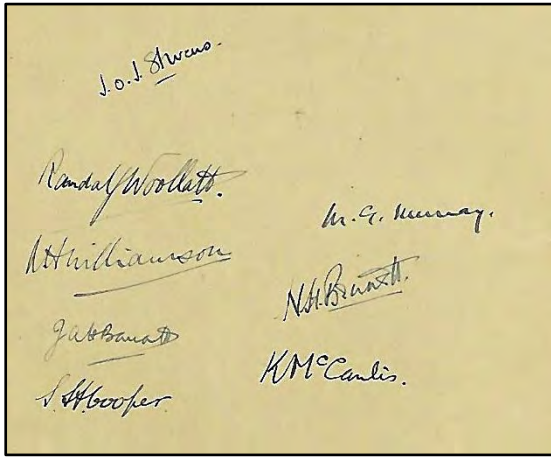 J. O. J. Stevens.
Randal G Woollatt.
Williamson
J A H Barratt
S. H. Cooper.
M. G. Murray.
N.H. Barratt.
K McCanlis.